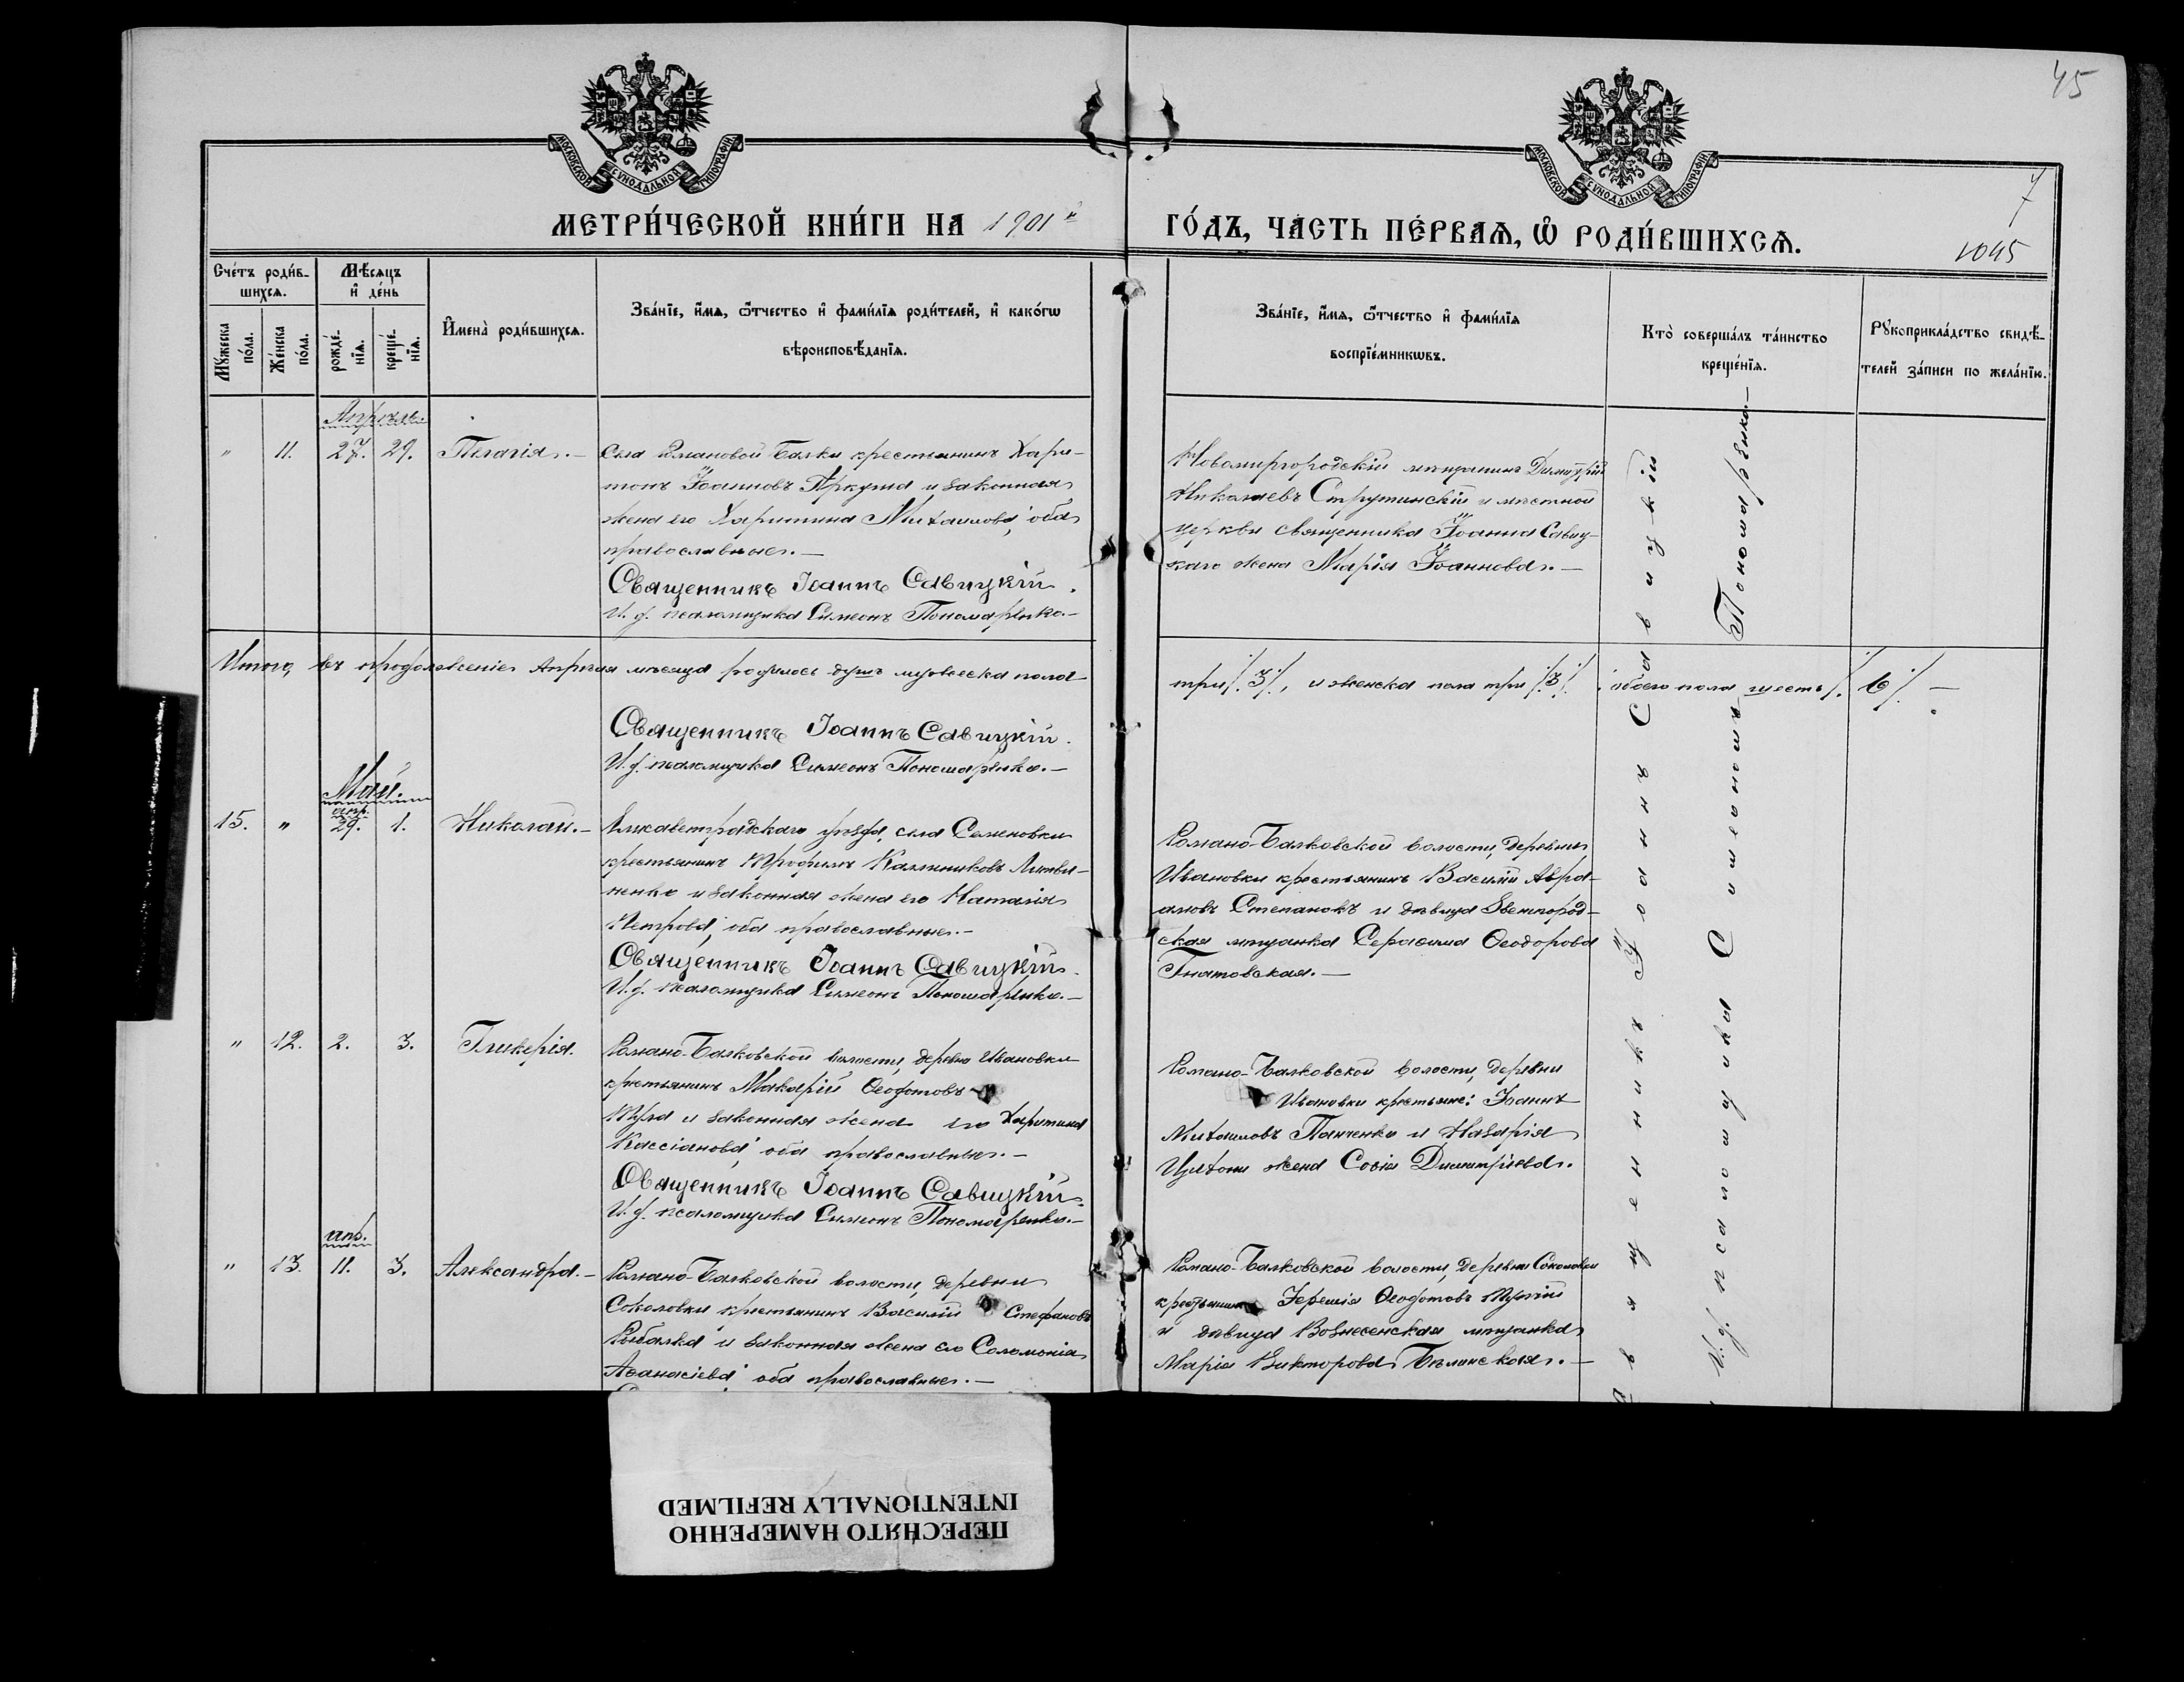 45
МОСКОВСКОЙ СѴНОДАЛЬНОЙ ТИПОГРАФІИ
МОСКОВСКОЙ СѴНОДАЛЬНОЙ ТИПОГРАФІИ
7
МЕТРИ́ЧЕСКОЙ КНИ́ГИ НА 1901й ГО́ДЪ, ЧА́СТЬ ПЕ́РВАѦ, Ѡ҆ РОДИ́ВШИХСѦ.
1045
Сче́тъ роди́в-
шихсѧ.
Мꙋ́жеска по́ла.
Же́нска по́ла.
Мѣ́сѧцъ
и҆ де́нь
рожде́-
нїѧ.
креще́-
нїѧ.
И҆мена̀ роди́вшихсѧ.
Зва́нїе, и҆́мѧ, ѻ҆́тчество и҆ фами́лїѧ роди́телей, и҆ како́гѡ
вѣроисповѣ́данїѧ.
Зва́нїе, и҆́мѧ, ѻ҆́тчество и҆ фами́лїѧ
воспрїе́мникѡвъ.
Кто̀ соверша́лъ та́инство
креще́нїѧ.
Рꙋкоприкла́дство свидѣ́-
телей за́писи по жела́нїю.
Апрѣль.
" 11. 27. 29. Пелагія.—
Села Романовой Балки крестьянинъ Хари-
тонъ Іоанновъ Аркуша и законная
жена его Харитина Михаилова, оба
православные.—
Священникъ Іоаннъ Савицкій.
И. д. псаломщика Симеонъ Пономаренко.—
Новомиргородскій мѣщанинъ Димитрій
Николаевъ Струтинскій и мѣстной
церкви священника Іоанна Савиц-
каго жена Марія Іоаннова.—
Итого, въ продолженіе Апрѣля мѣсяца родилось душъ мужеска пола
три /.3/., и женска пола три /.3/. обоего пола шесть /. 6/. —
Священникъ Іоаннъ Савицкій.
И. д. псаломщика Симеонъ Пономаренко.—
Май.
апр.
15. " 29. 1. Николай.—
Елисаветградскаго уѣзда, села Семеновки
крестьянинъ Трофимъ Каллиниковъ Литви-
ненко и законная жена его Наталія
Петрова, оба православные.—
Священникъ Іоаннъ Савицкій.
И. д. псаломщика Симеонъ Пономаренко.—
Романо-Балковской волости, деревни
Ивановки крестьянинъ Василій Авра-
амовъ Степанокъ и дѣвица Звенигород-
ская мѣщанка Серафима Ѳеодорова
Гнатовская.—
" 12. 2. 3. Гликерія.
Романо-Балковской волости, деревни Ивановки
крестьянинъ Макарій Ѳеодотовъ
и законная жена его Харитина
Кассіанова, оба православные.—
Священникъ Іоаннъ Савицкій.
И. д. псаломщика Симеонъ Пономаренко.—
Романо-Балковской волости, деревни
Ивановки крестьяне: Іоаннъ
Михаиловъ Панченко и Назарія
жена Софія Димитріева.
апр.
" 13. 11. 3. Александра.—
Романо-Балковской волости, деревни
Соколовки крестьянинъ Василій Стефановъ
Рыбалка и законная жена его Соломонія
Аѳанасіева, оба православные.—
Романо-Балковской волости, деревни Соколовки
крестьянинъ Іеремія Ѳеодотовъ
и дѣвица Вознесенская мѣщанка
Марія Викторова Бѣлинская.—
Священникъ Іоаннъ Савицкій
И. д. псаломщика Симеонъ Пономаренко.—
ПЕРЕСНЯТО НАМЕРЕННО
INTENTIONALLY REFILMED